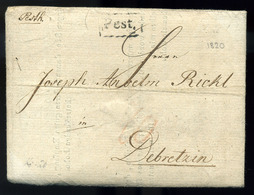 Pesth
Pest.
1820
Herrn
Joseph Anselm Richl
in
Debretzin